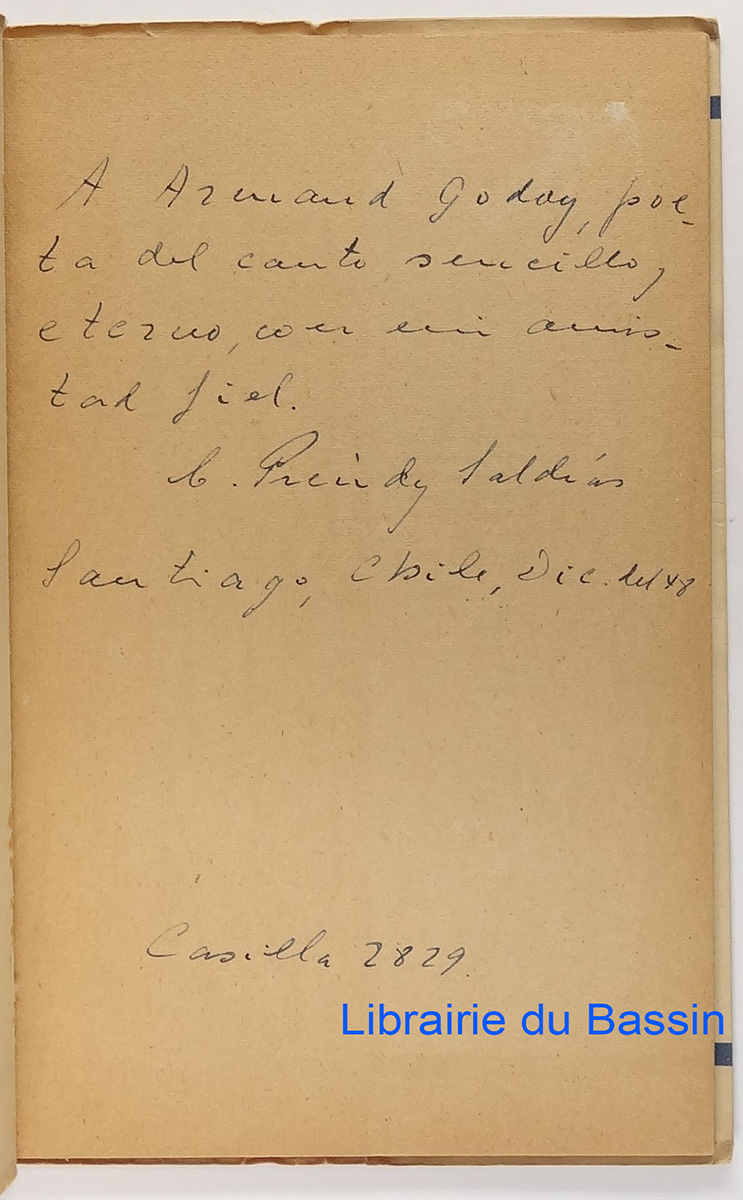 A Armand Godoy, poe-
ta del canto sencillo y
eterno, con mi amis-
tad fiel.
C. Préndez Saldías
Santiago, Chile, Dic. del 48
Casilla 2829.
Librairie du Bassin